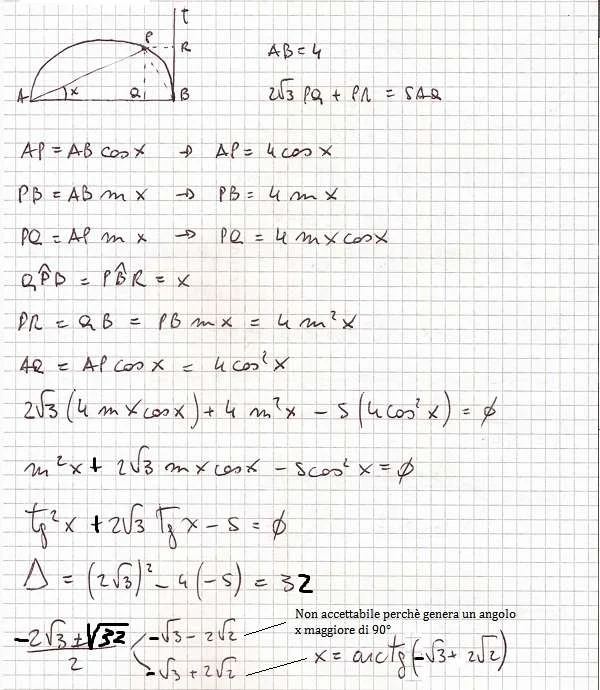 t
P
R
A
x
Q
B
AB = 4
2√3 PQ + PR = 5AQ
AP = AB cos x → AP = 4 cos x
PB = AB sin x → PB = 4 sin x
PQ = AP sin x → PQ = 4 sin x cos x
QP̂B = PB̂R = x
PR = QB = PB sin x = 4 sin² x
AQ = AP cos x = 4 cos² x
2√3 (4 sin x cos x) + 4 sin² x - 5 (4 cos² x) = ∅
sin² x + 2√3 sin x cos x - 5 cos² x = ∅
tg² x + 2√3 tg x - 5 = ∅
Δ = (2√3)² - 4(-5) = 32
Non accettabile perchè genera un angolo
x maggiore di 90°
(-2√3 ± √32) / 2
-√3 - 2√2
-√3 + 2√2
x = arctg(-√3 + 2√2)